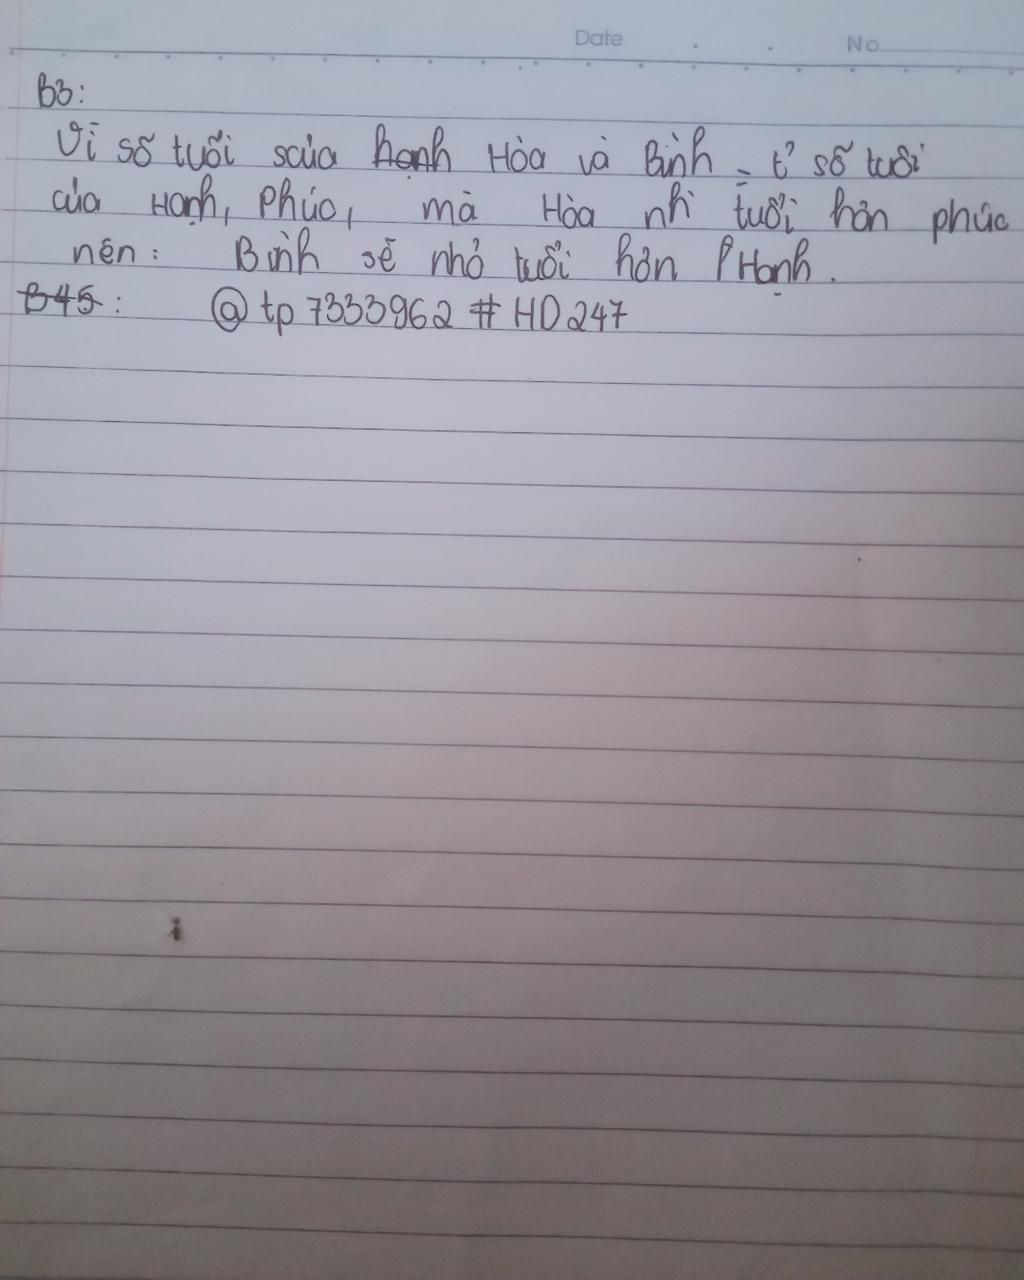 Date No
B3:
Vì số tuổi của Hòa và Bình = t' số tuổi
của Hạnh, Phúc, mà Hòa nh' tuổi hơn phúc
nên: Bình sẽ nhỏ tuổi hơn Hạnh.
B45: @tp7333962 #HD247